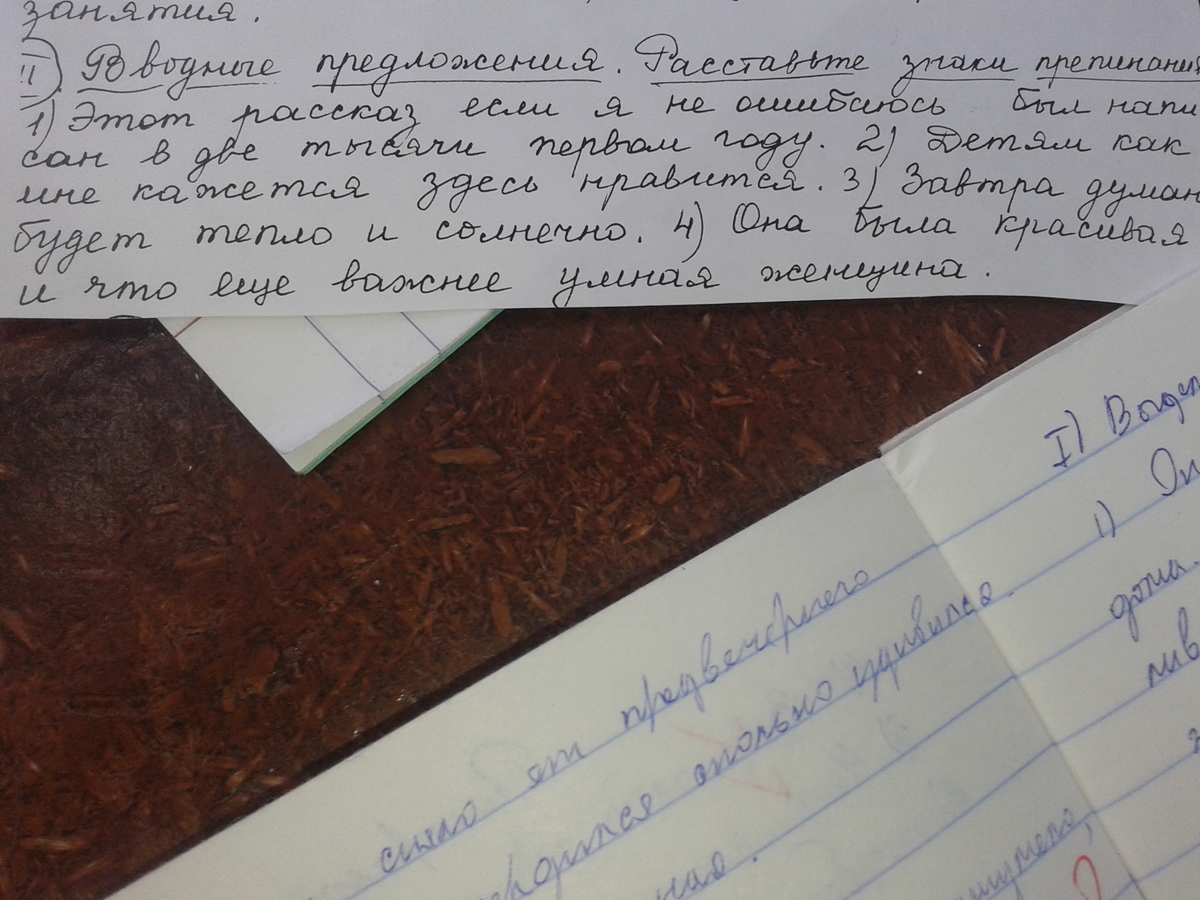 занятия.
II) Вводные предложения. Расставьте знаки препинания
1) Этот рассказ если я не ошибаюсь был напи
сан в две тысячи первом году. 2) Детям как
мне кажется здесь нравится. 3) Завтра думаю
будет тепло и солнечно. 4) Она была красивая
и что еще важнее умная женщина.
I) Выдел
1) Он
дома.
лив
сыто от предвечернего
сколько удивился.